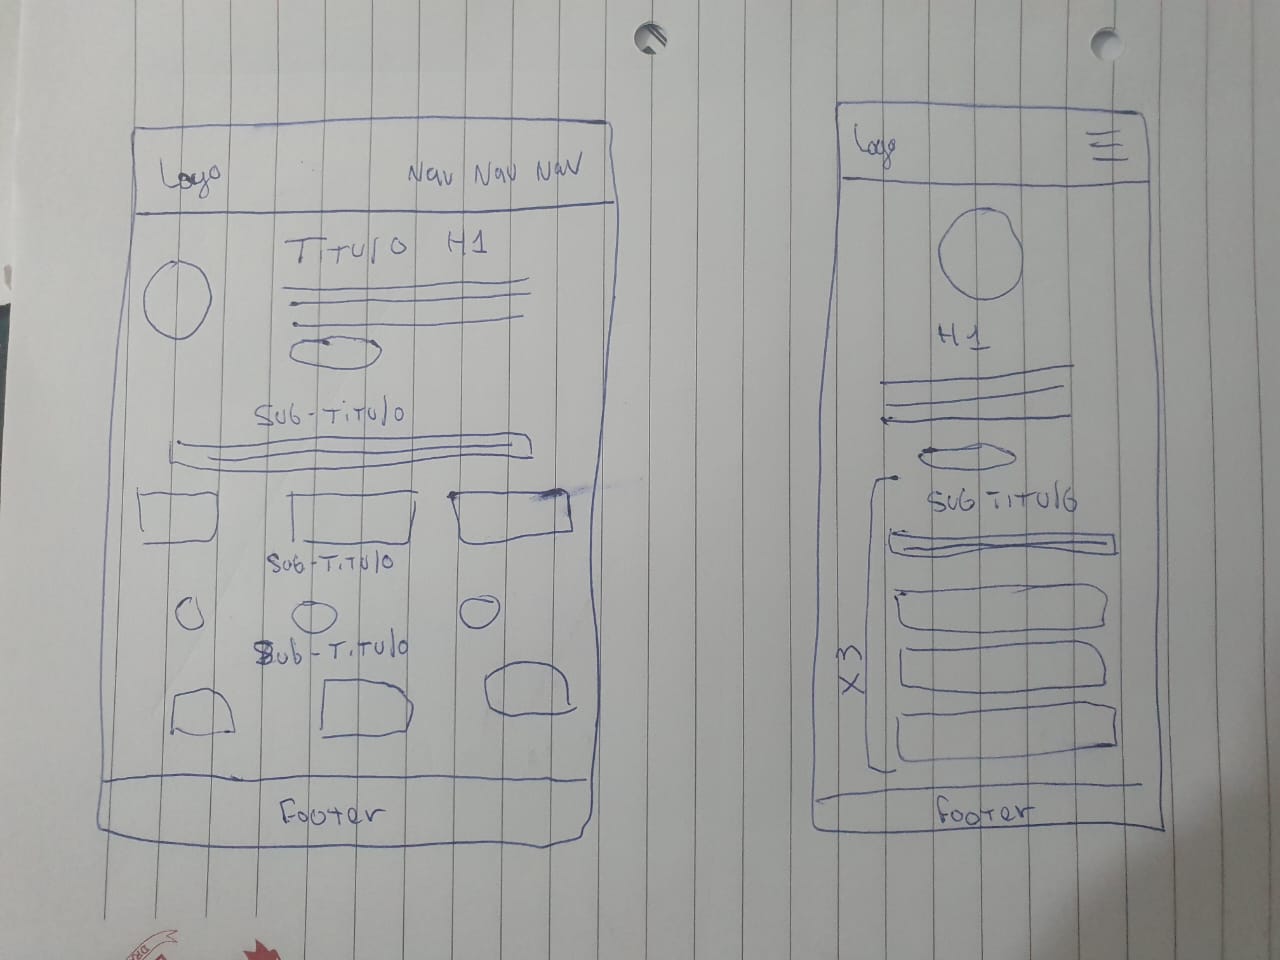 Logo Nav Nav Nav
Titulo H1
Sub-Titulo
Sub-Titulo
Sub-Titulo
Footer
Logo
H1
Sub Titulo
X3
Footer